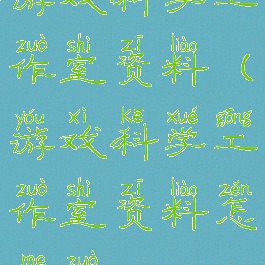 游戏科学工
zuò shì zī liào
作室资料（
yóu xì kē xué gōng
游戏科学工
zuò shì zī liào zěn
作室资料怎
me zuò